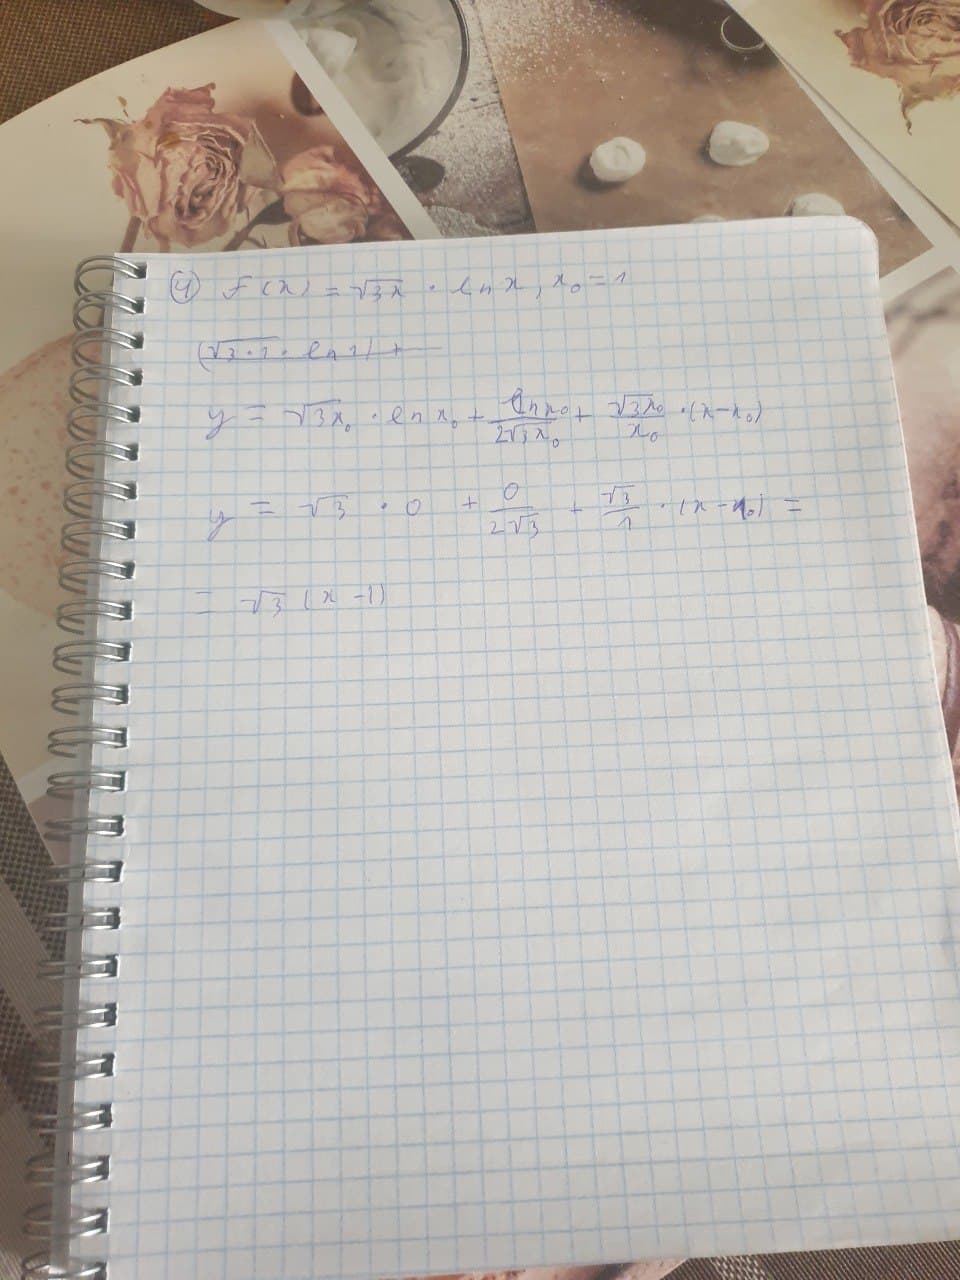 ④ f(x) = √3x · ln x, x₀ = 1
(√3·1 · ln 1) +
y = √3x₀ · ln x₀ + ln x₀/2√3x₀ + √3x₀/x₀ · (x - x₀)
y = √3 · 0 + 0/2√3 + √3/1 · (x - x₀) =
= √3 (x - 1)